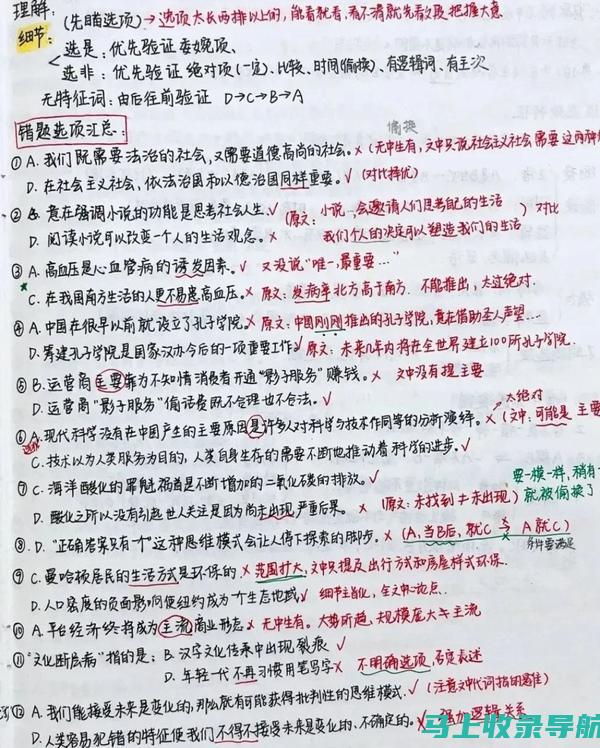 理解:
(先瞄选项)→选项太长两排以上的,能看就看,看不清就先看文段把握大意
细节:
选是:优先验证委婉项、
选非:优先验证绝对项(一定)、比较、时间(偷换)、有逻辑词、有主次
无特征词:由后往前验证 D→C→B→A
错题选项汇总:
偷换
①A.我们既需要法治的社会,又需要道德高尚的社会.×(无中生有,文中只说社会主义社会需要这两种
D.在社会主义社会,依法治国和以德治国同样重要.√(对比择优)
②B.意在强调小说的功能是思考社会人生.√(原文:小说…会邀请人们思考配的生活
D.阅读小说可以改变一个人的生活观念.× 我们个人的决定可以塑造我们的生活
)对比
③A.高血压是心血管病的诱发因素.√ 又没说"唯一,最重要…"
C.在我国南方生活的人更不易患高血压.× 原文:发病率北方高于南方.不能推出,太过绝对.
④A.中国在很早以前就设立了孔子学院.× 原文:中国刚刚推出的孔子学院,意在借助圣人声望…
D.筹建孔子学院是国家汉办今后的一项重要工作√ 原文:未来几年内将在全世界建立100所孔子学院.
⑤B.运营商主要靠为不知情消费者开通"影子服务"赚钱.× 文中没有提主要
D.运营商"影子服务"偷话费既不合理也不合法.√
太绝对
⑥A.现代科学没有在中国产生的主要原因是许多人对科学与技术作同等的分析演绎.×(文中:可能是 主要
C.技术以为人类服务为目的,人类自身生存的需要不断地推动着科学的进步.√
⑦C.海洋酸化的罪魁祸首是不断增加的二氧化碳的排放.√
要一模一样,稍有
D.酸化之所以没有引起世人关注是因为尚未出现严重后果.×(原文:未找到≠未出现)
就被偷换了
⑧D."正确答案只有一个"这种思维模式会让人停下探索的脚步.√(A,当B后,就C → A就C)
条件要满足
⑨C.曼哈顿居民的生活方式是环保的×范围扩大,文中只提及出行方式和房屋样式环保.
D.人口密度的负面影响使纽约成为一个生态地域√ 细节主旨化,全文中心论点.
⑩A.平台经济终将成为主流商业形态×无中生有.大势所趋,规模庞大≠主流
⑪"文化断层病"指的是:B.汉字文化传承中出现裂痕√
D.年轻一代不再习惯用笔写字× 不明确选项,态度表述
⑫A.我们能接受未来是变化的,那么就有可能获得批判性的思维模式.√(注意文中代词指的是谁)
D.人类容易犯错的特征使我们不得不接受未来是变化的、不确定的.×强加逻辑关系
马上收录导航